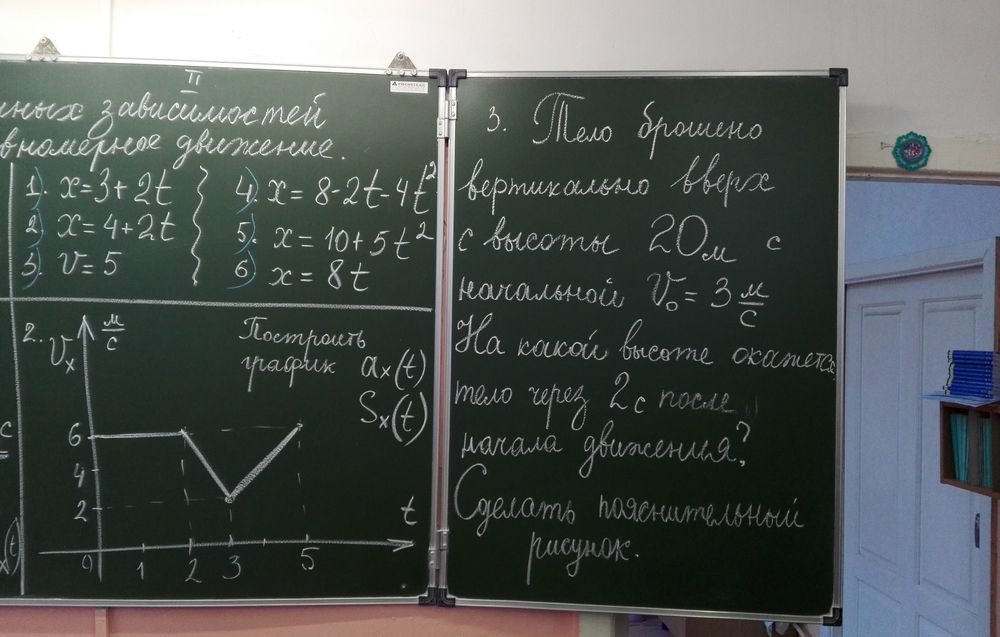 II
нных зависимостей
вномерное движение.
1). x=3+2t
2) x=4+2t
3). v=5
4.) x=8-2t-4t²
5. x=10+5t²
6) x=8t
2. Vx м/с
Построить
график ax(t)
Sx(t)
6
4
2
0 1 2 3 5 t
3. Тело брошено
вертикально вверх
с высоты 20м с
начальной V₀=3 м/с
На какой высоте окажется
тело через 2с после
начала движения?
Сделать пояснительный
рисунок.